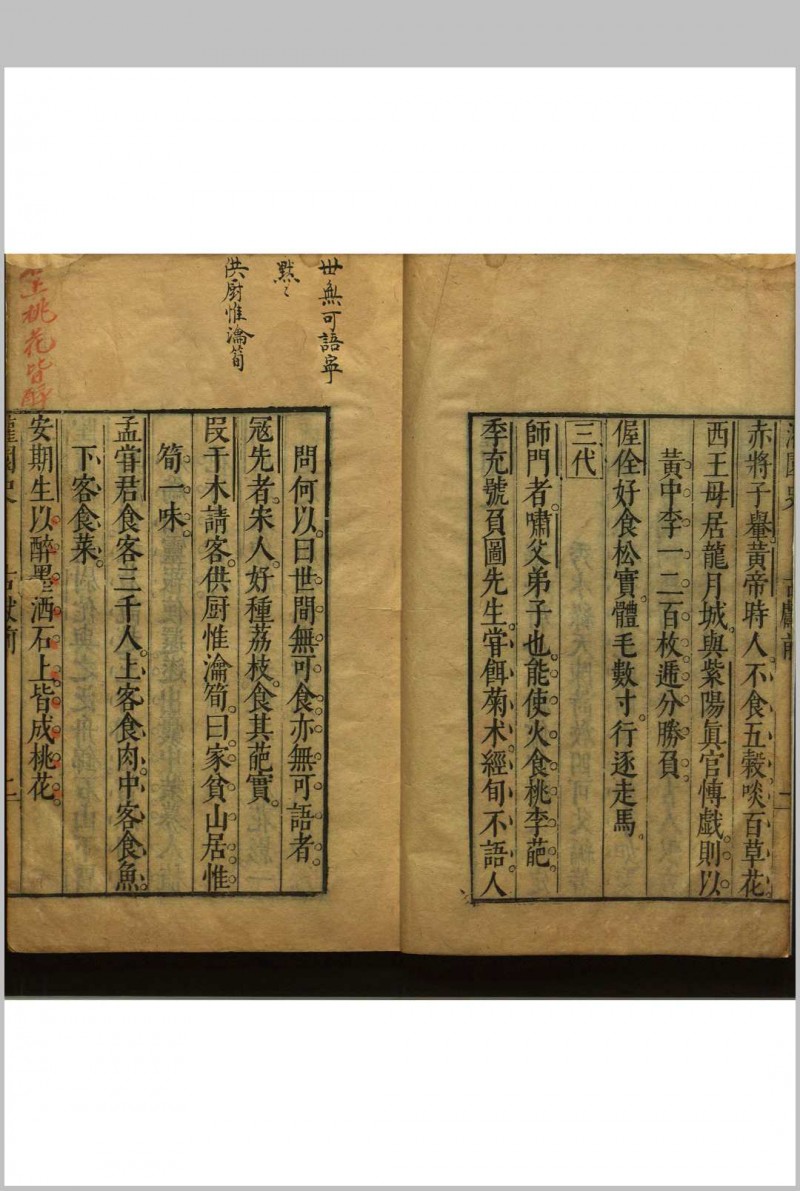 赤將子轝黃帝時人不食五穀啖百草花
西王母居龍月城與紫陽真官博戲則以
黃中李一二百枚遞分勝負
偓佺好食松實體毛數寸行逐走馬
三代
師門者嘯父弟子也能使火食桃李葩
季充號負圖先生嘗餌菊术經旬不語人
世無可語寧
默〻
供廚惟瀹筍
問何以曰世間無可食亦無可語者
冦先者宋人好種荔枝食其葩實
段干木請客供厨惟瀹筍曰家貧山居惟
筍一味
孟甞君食客三千人上客食肉中客食魚
下客食菜
坐桃花皆醉
安期生以醉墨洒石上皆成桃花
灌園史 古獻前 二